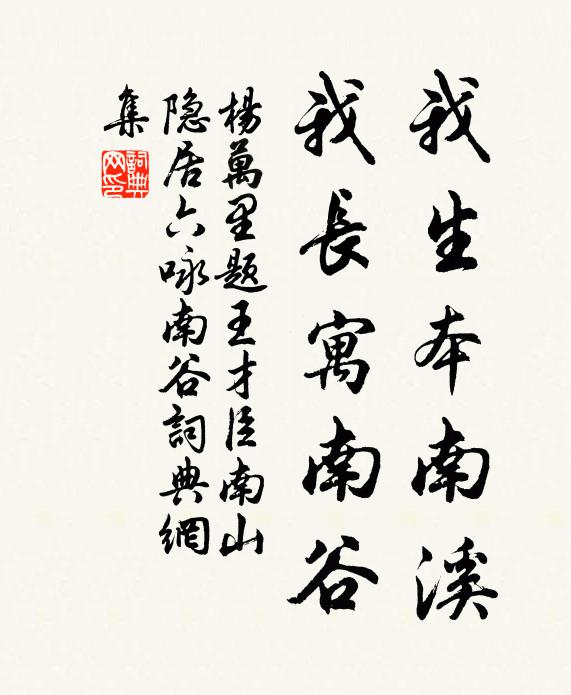 我生本南溪
我長寓南谷
楊萬里題王才臣南山
隐居六咏南谷詞典網
集
詞典網印